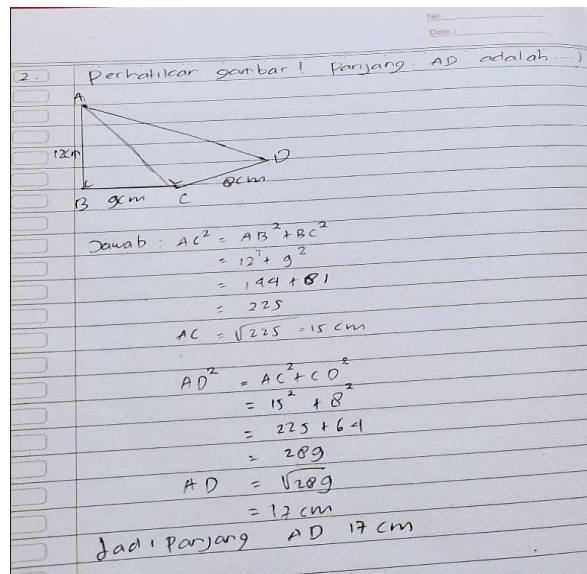 No.
Date:
2. Perhatikar gambar! Panjang AD adalah ...)
A
12cm
D
8cm
B 9cm C
Jawab : AC² = AB² + BC²
= 12² + 9²
= 144 + 81
= 225
AC = √225 = 15 cm
AD² = AC² + CD²
= 15² + 8²
= 225 + 64
= 289
AD = √289
= 17 cm
Jadi panjang AD 17 cm